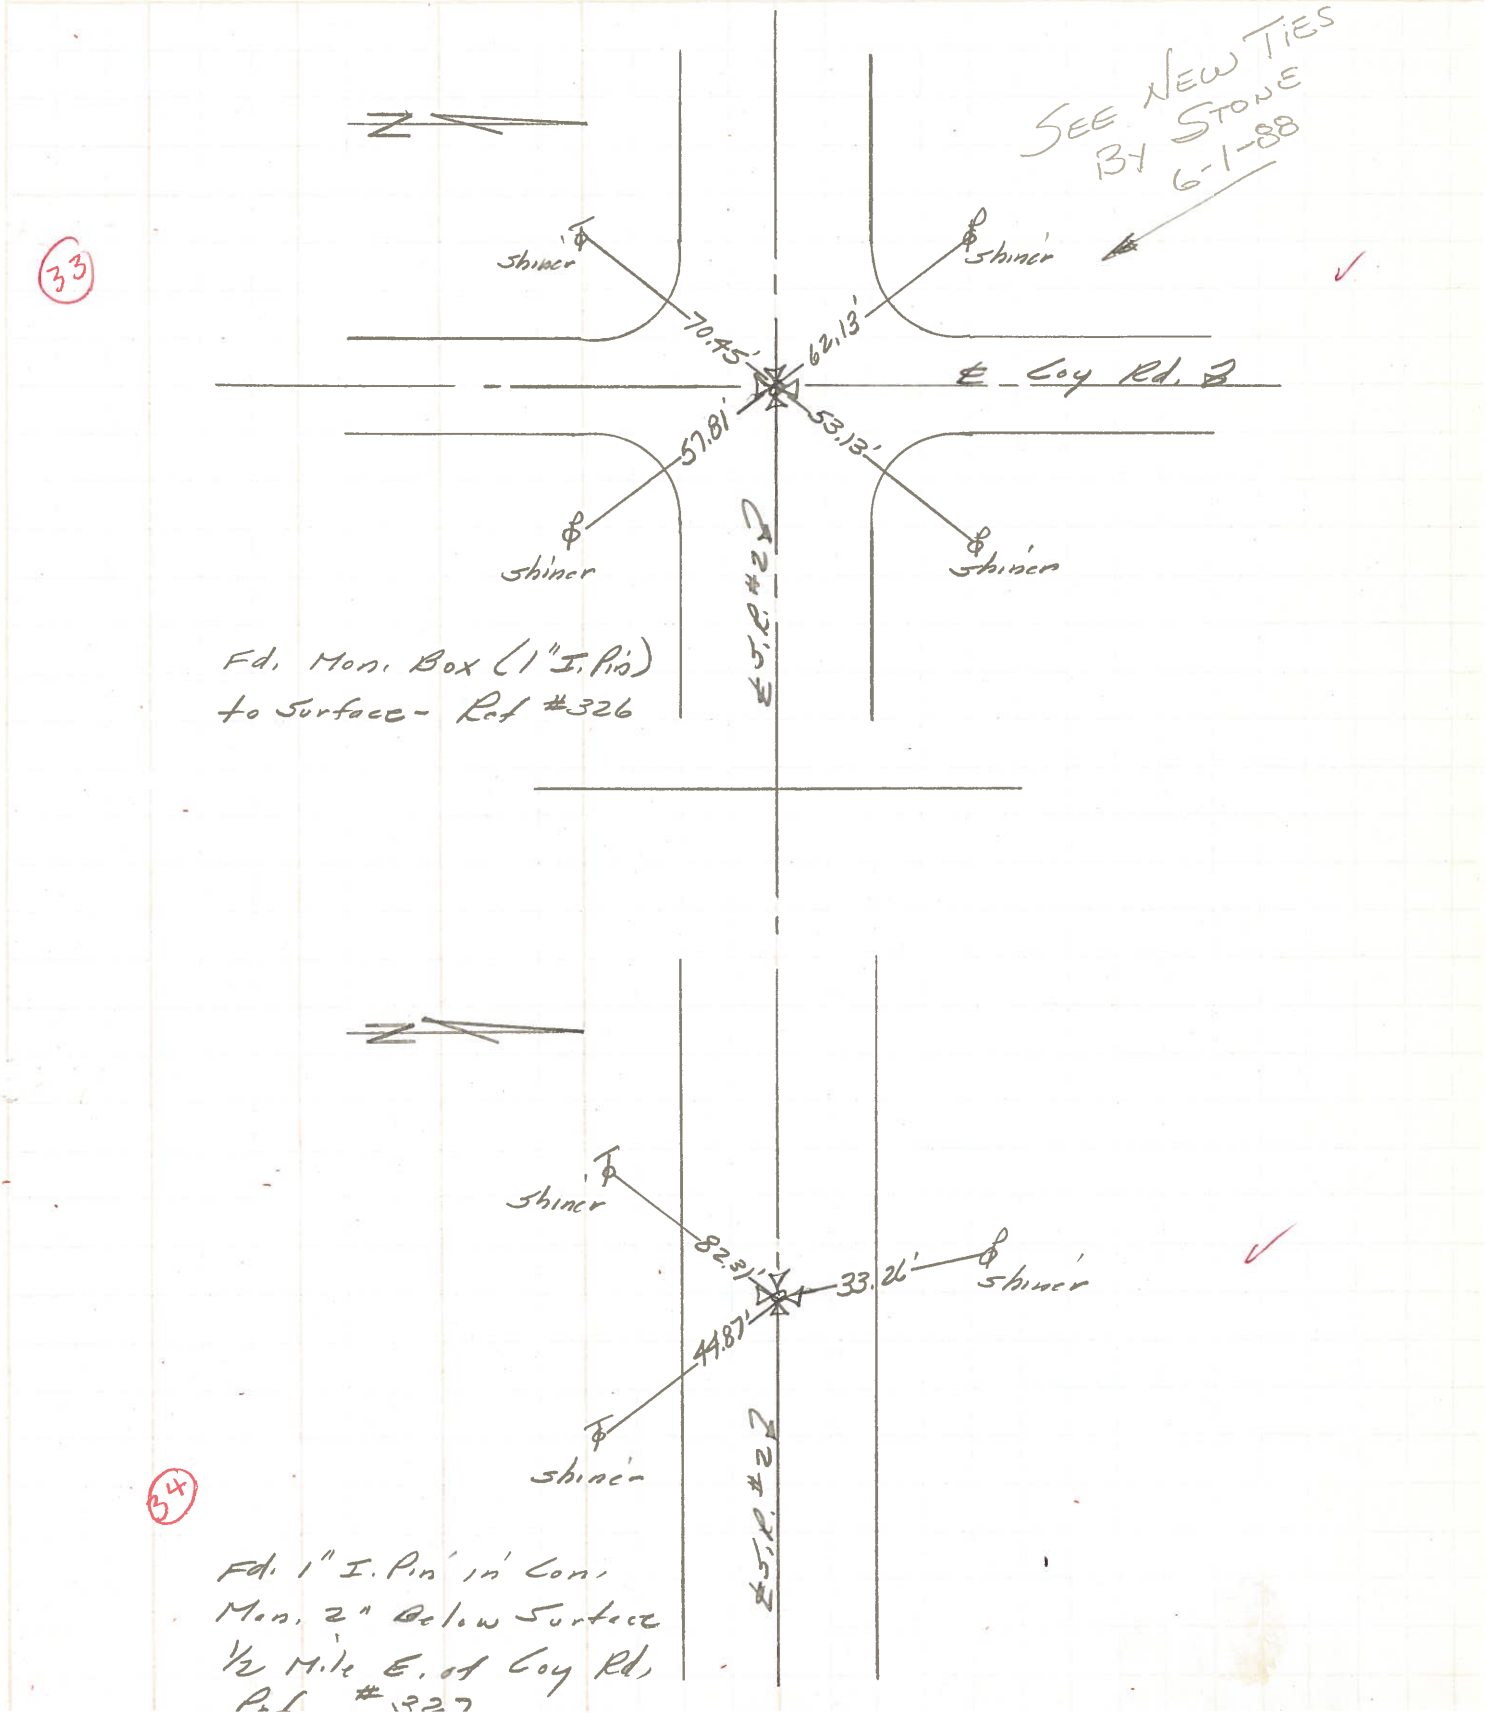 SEE NEW TIES
BY STONE
6-1-88
N
33
shiner
shiner
70.45'
62.13'
℄ Coy Rd.
57.81'
53.13'
shiner
shiner
℄ S.R. #2
Fd. Mon. Box (1" I. Pin)
to Surface - Ref #326
N
shiner
82.31'
33.26'
shiner
44.87'
shiner
℄ S.R. #2
34
Fd. 1" I. Pin in Con.
Mon. 2" Below Surface
1/2 Mile E. of Coy Rd,
Ref #327